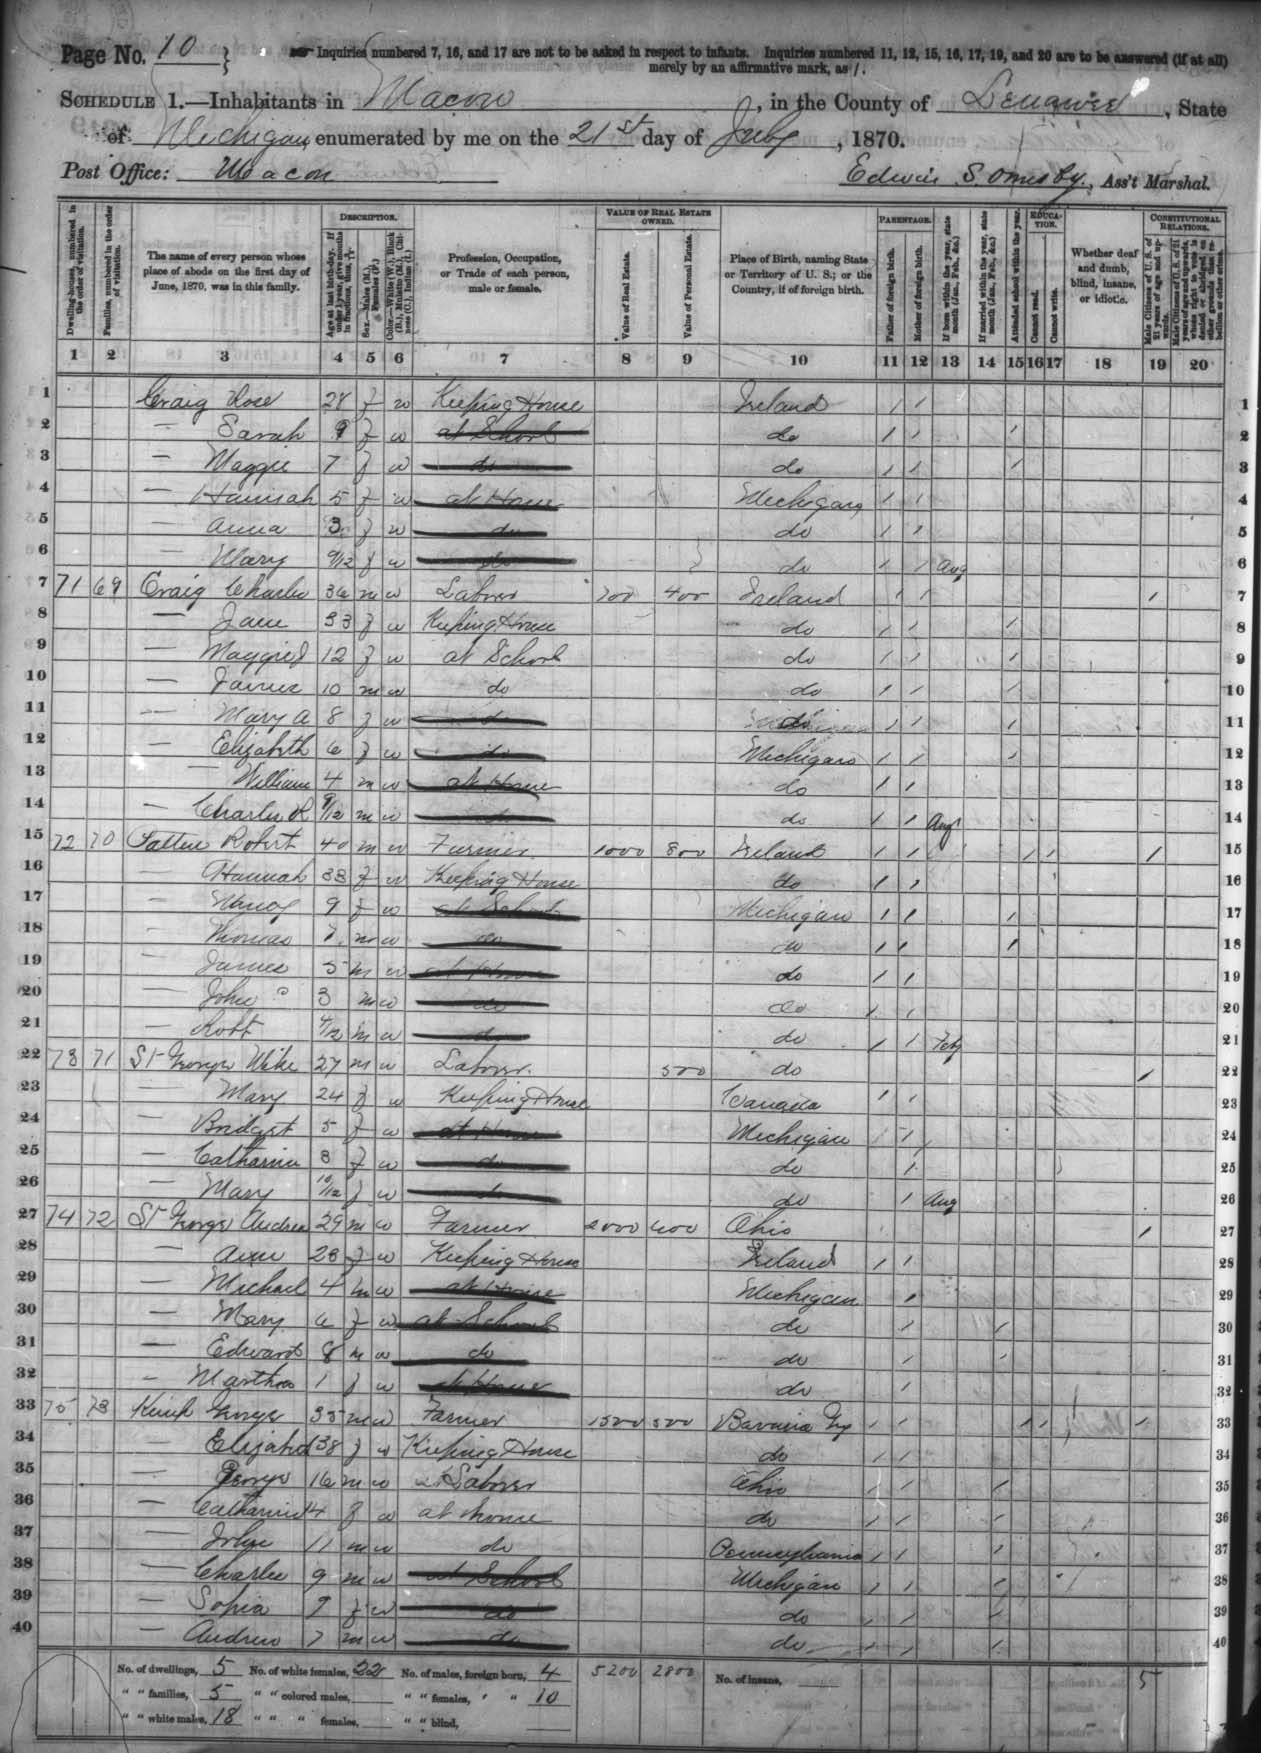 Page No. 10 } Inquiries numbered 7, 16, and 17 are not to be asked in respect to infants. Inquiries numbered 11, 12, 15, 16, 17, 19, and 20 are to be answered (if at all)
merely by an affirmative mark, as /.
SCHEDULE 1.—Inhabitants in Macon, in the County of Lenawee, State
of Michigan enumerated by me on the 21st day of July, 1870.
Post Office: Macon Edwin S. Ormsby, Ass't Marshal.
DESCRIPTION. VALUE OF REAL ESTATE OWNED. PARENTAGE. EDUCATION. CONSTITUTIONAL RELATIONS.
Dwelling-houses, numbered in the order of visitation.
Families, numbered in the order of visitation.
The name of every person whose place of abode on the first day of June, 1870, was in this family.
Age at last birth-day. If under 1 year, give months in fractions, thus, 3/12
Sex.—Males (M.), Females (F.)
Color.—White (W.), Black (B.), Mulatto (M.), Chinese (C.), Indian (I.)
Profession, Occupation, or Trade of each person, male or female.
Value of Real Estate.
Value of Personal Estate.
Place of Birth, naming State or Territory of U. S.; or the Country, if of foreign birth.
Father of foreign birth.
Mother of foreign birth.
If born within the year, state month (Jan., Feb., &c.)
If married within the year, state month (Jan., Feb., &c.)
Attended school within the year.
Cannot read.
Cannot write.
Whether deaf and dumb, blind, insane, or idiotic.
Male Citizens of U. S. of 21 years of age and upwards.
Male Citizens of U. S. of 21 years of age and upwards, whose right to vote is denied or abridged on other grounds than rebellion or other crime.
1 2 3 4 5 6 7 8 9 10 11 12 13 14 15 16 17 18 19 20
1 Craig Rose 28 f w Keeping House Ireland / / 1
2 — Sarah 9 f w at School do / / / 2
3 — Maggie 7 f w do do / / / 3
4 — Hannah 5 f w at Home Michigan / / 4
5 — Anna 3 f w do do / / 5
6 — Mary 9/12 f w do do / / Aug 6
7 71 69 Craig Charles 36 m w Laborer 700 400 Ireland / / / 7
8 — Jane 33 f w Keeping House do / / / 8
9 — Maggie J 12 f w at School do / / / 9
10 — James 10 m w do do / / / 10
11 — Mary A 8 f w do do / / / 11
12 — Elizabeth 6 f w do Michigan / / / 12
13 — William 4 m w at Home do / / 13
14 — Charles R 9/12 m w do do / / Aug 14
15 72 70 Robert 40 m w Farmer 1000 800 Ireland / / / / / 15
16 — Hannah 38 f w Keeping House do / / 16
17 — Nancy 9 f w at School Michigan / / / 17
18 — Thomas 7 m w do do / / / 18
19 — James 5 m w at Home do / / 19
20 — John 3 m w do do / / 20
21 — Robt 4/12 m w do do / / Feb 21
22 73 71 St George Mike 27 m w Laborer 500 do / 22
23 — Mary 24 f w Keeping House Canada / / 23
24 — Bridget 5 f w at Home Michigan / / 24
25 — Catharine 3 f w do do / 25
26 — Mary 10/12 f w do do / Aug 26
27 74 72 St George Andrew 29 m w Farmer 2000 600 Ohio / 27
28 — Ann 28 f w Keeping House Ireland / / 28
29 — Michael 4 m w at Home Michigan / 29
30 — Mary 6 f w at School do / / 30
31 — Edward 8 m w do do / / 31
32 — Martha 1 f w at Home do / 32
33 75 73 George 35 m w Farmer 1500 500 Bavaria / / / / / 33
34 — Elizabeth 38 f w Keeping House do / / 34
35 — George 16 m w Laborer Ohio / / / 35
36 — Catharine 14 f w at home do / / / 36
37 — John 11 m w do Pennsylvania / / / 37
38 — Charles 9 m w at School Michigan / / / 38
39 — Sophia 9 f w do do / / / 39
40 — Andrew 7 m w do do / / / 40
No. of dwellings, 5 No. of white females, 22 No. of males, foreign born, 4 5200 2800 No. of insane, 5
" " families, 5 " " colored males, " " females, " " 10
" " white males, 18 " " " females, " " blind,